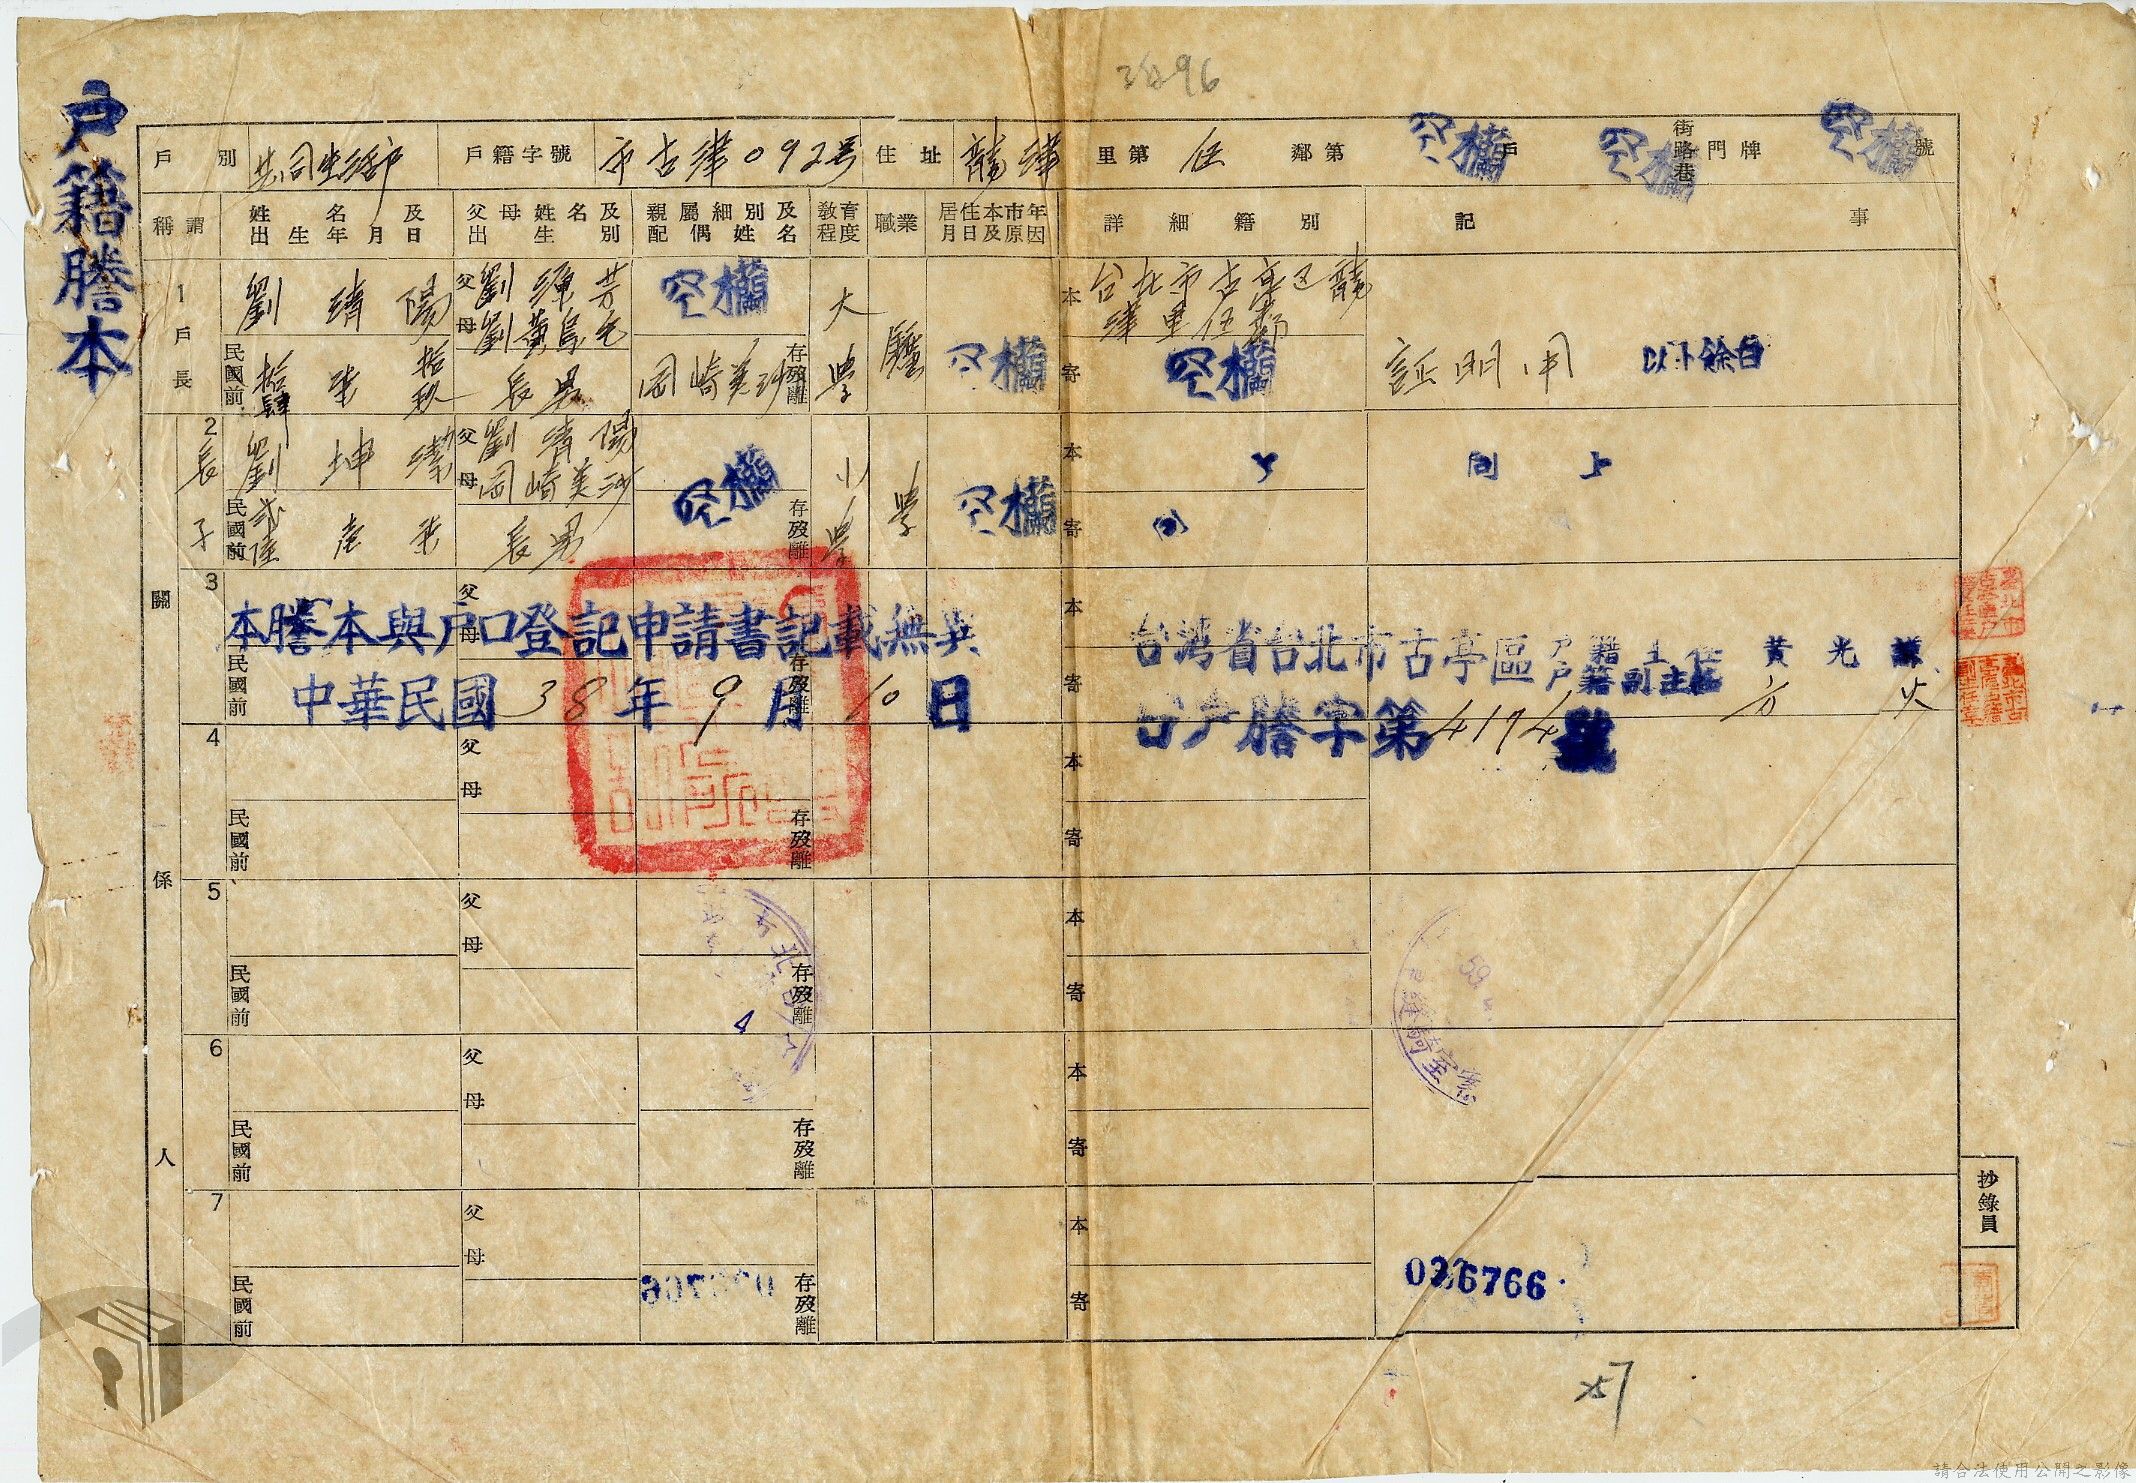 戶籍謄本
戶別 共同生活戶 戶籍字號 市古律092号 住址 龍津 里第 伍 鄰第 空欄 戶 空欄 街路巷 門牌 空欄 號
稱謂 姓名及出生年月日 父母姓名及出生別 親屬細別及配偶姓名 教育程度 職業 居住本市年月日及原因 詳細籍別 記事
關係人
1 戶長 劉 靖 陽 父 劉 芳 母 劉黃烏 空欄 大學 醫 空欄 本 台北市古亭区龍津里伍鄰 証明用 以下餘白
民國前 長男 岡崎美沙 存歿離 寄 空欄
2 長子 劉 坤 父 劉靖陽 母 岡崎美沙 空欄 小學 學 空欄 本 同上
民國前 長男 存歿離 寄
3 父 母 本
本謄本與戶口登記申請書記載無異
台湾省台北市古亭區戶籍主任 黃光
戶籍副主任
民國前 存歿離 寄
中華民國38年9月10日
戶謄字第4174號
4 父 母 本
民國前 存歿離 寄
5 父 母 本
民國前 存歿離 寄
6 父 母 本
民國前 存歿離 寄
7 父 母 本
民國前 存歿離 寄
抄錄員
036766
請合法使用公開之影像